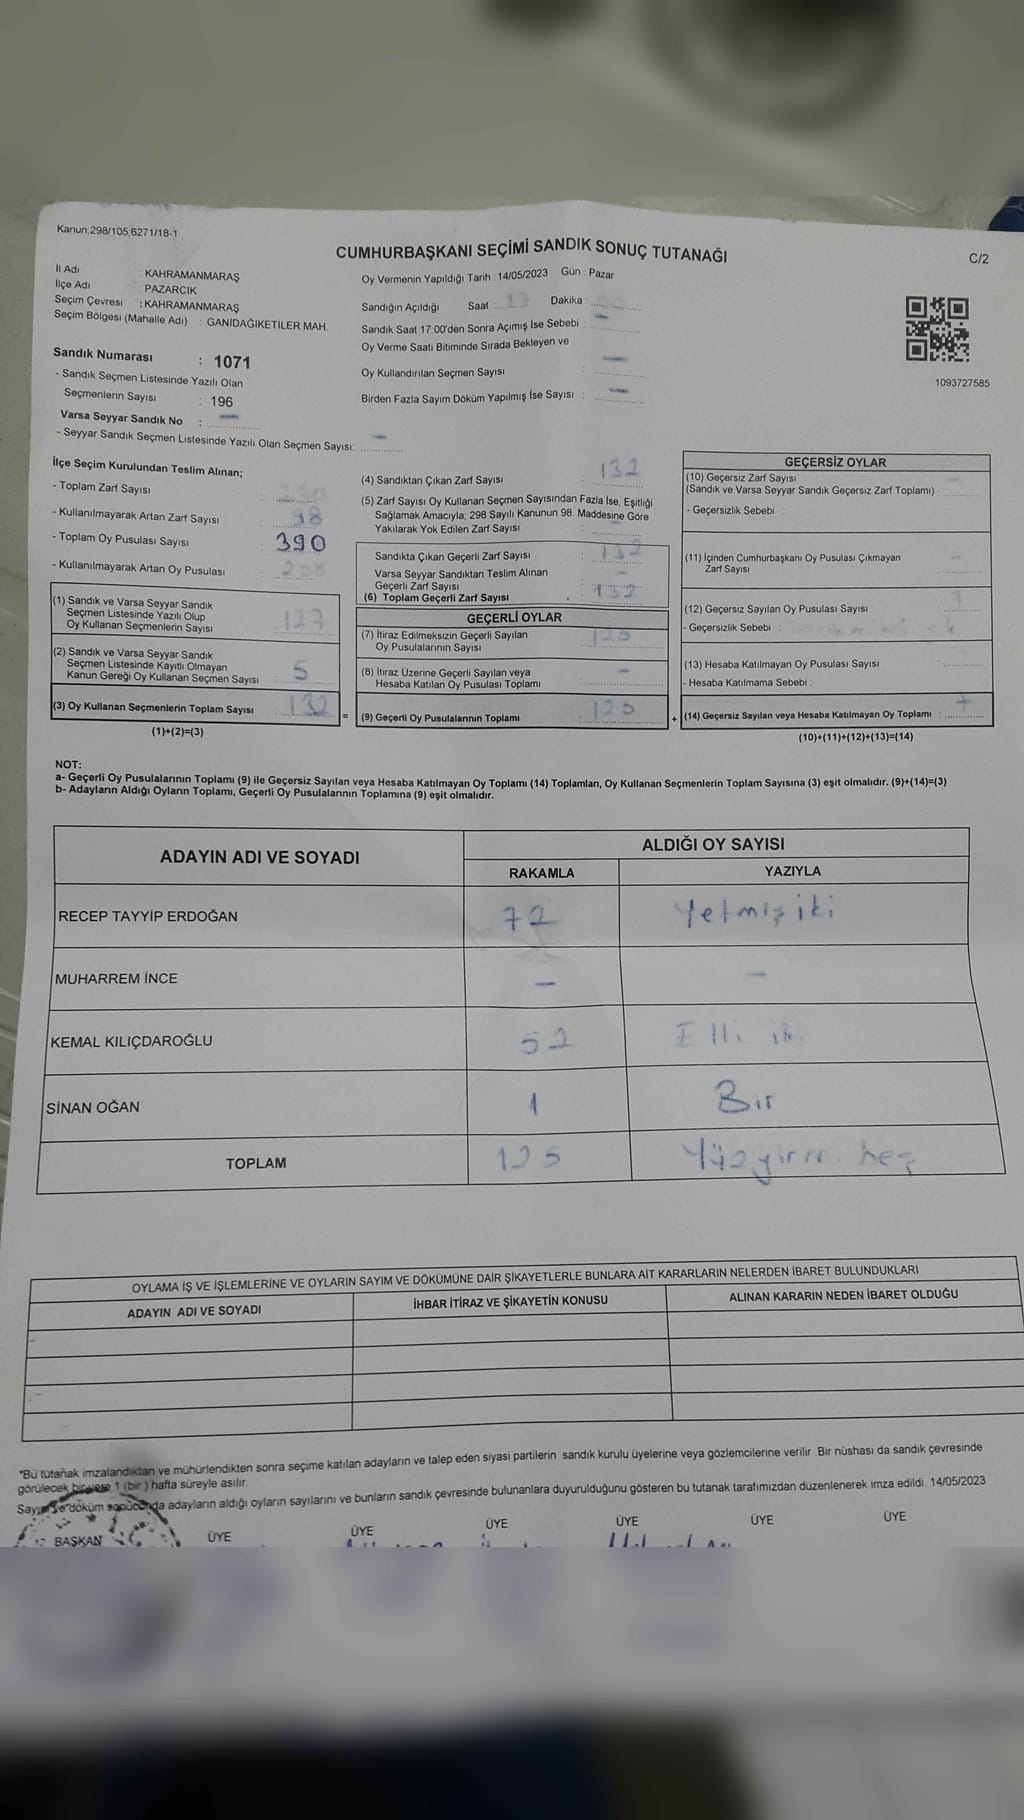 Kanun;298/105,6271/18-1
CUMHURBAŞKANI SEÇİMİ SANDIK SONUÇ TUTANAĞI
C/2
İl Adı : KAHRAMANMARAŞ
İlçe Adı : PAZARCIK
Seçim Çevresi : KAHRAMANMARAŞ
Seçim Bölgesi (Mahalle Adı) : GANİDAĞIKETİLER MAH.
Sandık Numarası : 1071
- Sandık Seçmen Listesinde Yazılı Olan
Seçmenlerin Sayısı : 196
Varsa Seyyar Sandık No : —
- Seyyar Sandık Seçmen Listesinde Yazılı Olan Seçmen Sayısı: —
Oy Vermenin Yapıldığı Tarih : 14/05/2023 Gün : Pazar
Sandığın Açıldığı Saat : 17 Dakika :
Sandık Saat 17:00'den Sonra Açımış İse Sebebi : —
Oy Verme Saati Bitiminde Sırada Bekleyen ve
Oy Kullandırılan Seçmen Sayısı : —
Birden Fazla Sayım Döküm Yapılmış İse Sayısı : —
1093727585
İlçe Seçim Kurulundan Teslim Alınan;
- Toplam Zarf Sayısı :
- Kullanılmayarak Artan Zarf Sayısı : 98
- Toplam Oy Pusulası Sayısı : 390
- Kullanılmayarak Artan Oy Pusulası :
(1) Sandık ve Varsa Seyyar Sandık
Seçmen Listesinde Yazılı Olup
Oy Kullanan Seçmenlerin Sayısı : 127
(2) Sandık ve Varsa Seyyar Sandık
Seçmen Listesinde Kayıtlı Olmayan
Kanun Gereği Oy Kullanan Seçmen Sayısı : 5
(3) Oy Kullanan Seçmenlerin Toplam Sayısı : 132
(1)+(2)=(3)
(4) Sandıktan Çıkan Zarf Sayısı : 132
(5) Zarf Sayısı Oy Kullanan Seçmen Sayısından Fazla İse, Eşitliği
Sağlamak Amacıyla, 298 Sayılı Kanunun 98. Maddesine Göre
Yakılarak Yok Edilen Zarf Sayısı :
Sandıkta Çıkan Geçerli Zarf Sayısı : 132
Varsa Seyyar Sandıktan Teslim Alınan
Geçerli Zarf Sayısı : —
(6) Toplam Geçerli Zarf Sayısı : 132
GEÇERLİ OYLAR
(7) İtiraz Edilmeksizin Geçerli Sayılan
Oy Pusulalarının Sayısı : 125
(8) İtiraz Üzerine Geçerli Sayılan veya
Hesaba Katılan Oy Pusulası Toplamı : —
= (9) Geçerli Oy Pusulalarının Toplamı : 125
GEÇERSİZ OYLAR
(10) Geçersiz Zarf Sayısı
(Sandık ve Varsa Seyyar Sandık Geçersiz Zarf Toplamı) :
- Geçersizlik Sebebi :
(11) İçinden Cumhurbaşkanı Oy Pusulası Çıkmayan
Zarf Sayısı :
(12) Geçersiz Sayılan Oy Pusulası Sayısı : 7
- Geçersizlik Sebebi :
(13) Hesaba Katılmayan Oy Pusulası Sayısı :
- Hesaba Katılmama Sebebi :
+ (14) Geçersiz Sayılan veya Hesaba Katılmayan Oy Toplamı : 7
(10)+(11)+(12)+(13)=(14)
NOT:
a- Geçerli Oy Pusulalarının Toplamı (9) ile Geçersiz Sayılan veya Hesaba Katılmayan Oy Toplamı (14) Toplamları, Oy Kullanan Seçmenlerin Toplam Sayısına (3) eşit olmalıdır. (9)+(14)=(3)
b- Adayların Aldığı Oyların Toplamı, Geçerli Oy Pusulalarının Toplamına (9) eşit olmalıdır.
ADAYIN ADI VE SOYADI ALDIĞI OY SAYISI
RAKAMLA YAZIYLA
RECEP TAYYİP ERDOĞAN 72 Yetmiş iki
MUHARREM İNCE — —
KEMAL KILIÇDAROĞLU 52 Elli iki
SİNAN OĞAN 1 Bir
TOPLAM 125 Yüzyirmi beş
OYLAMA İŞ VE İŞLEMLERİNE VE OYLARIN SAYIM VE DÖKÜMÜNE DAİR ŞİKAYETLERLE BUNLARA AİT KARARLARIN NELERDEN İBARET BULUNDUKLARI
ADAYIN ADI VE SOYADI İHBAR İTİRAZ VE ŞİKAYETİN KONUSU ALINAN KARARIN NEDEN İBARET OLDUĞU
*Bu tutanak imzalandıktan ve mühürlendikten sonra seçime katılan adayların ve talep eden siyasi partilerin sandık kurulu üyelerine veya gözlemcilerine verilir. Bir nüshası da sandık çevresinde
görülecek bir yere 1 (bir) hafta süreyle asılır.
Sayım ve döküm sonucunda adayların aldığı oyların sayılarını ve bunların sandık çevresinde bulunanlara duyurulduğunu gösteren bu tutanak tarafımızdan düzenlenerek imza edildi. 14/05/2023
BAŞKAN ÜYE ÜYE ÜYE ÜYE ÜYE ÜYE